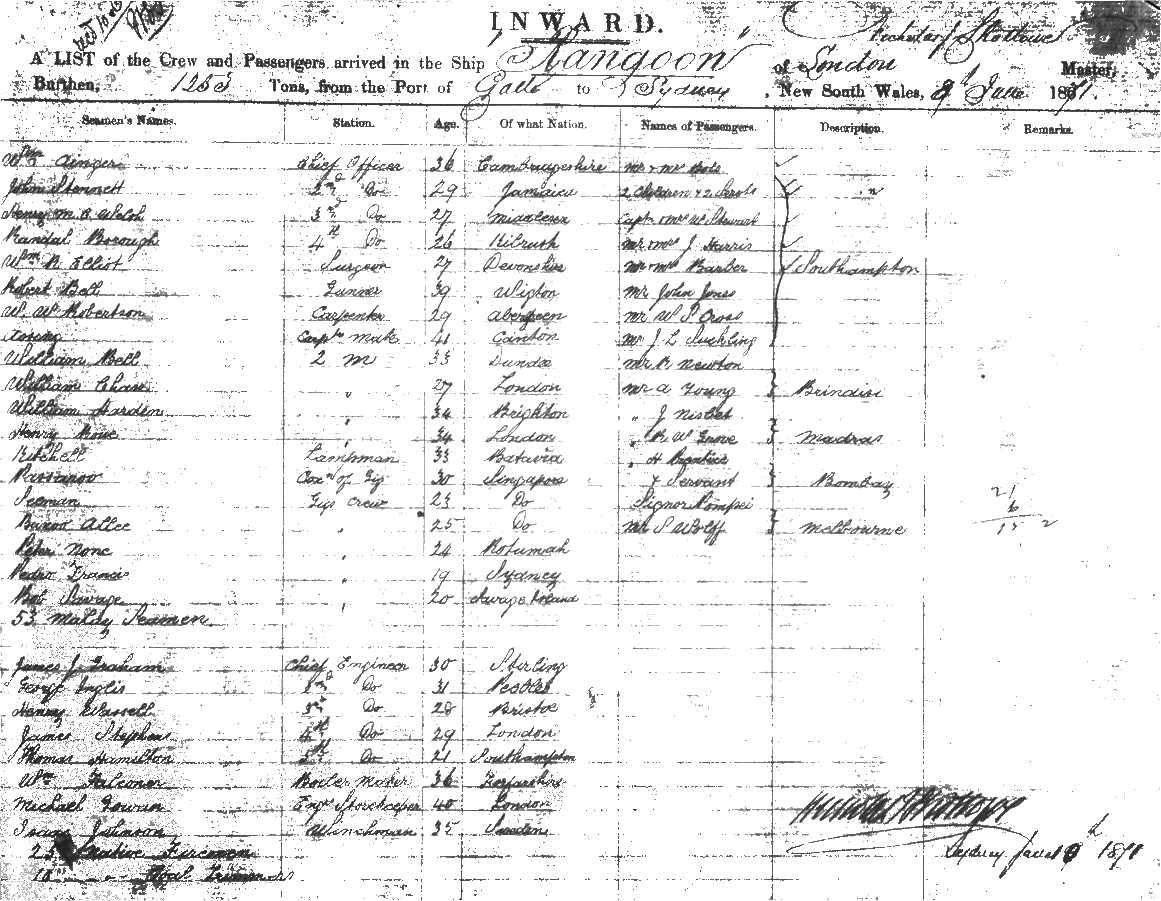 INWARD.
A LIST of the Crew and Passengers arrived in the Ship "Rangoon" of London Master,
Burthen, 1253 Tons, from the Port of Galle to Sydney, New South Wales, June 1871.
Seamen's Names. Station. Age. Of what Nation. Names of Passengers. Description. Remarks.
Wm Ainger Chief Officer 36 Cambridgeshire Mr & Mrs
John Stennett 2nd Do 29 Jamaica 2 Children & 2 Servts "
Henry M. R. Welch 3rd Do 27 Middlesex Capt & Mrs W Stewart
Randal Borough 4th Do 26 Kilrush Mr & Mrs J. Harris
Wm R. Elliot Surgeon 27 Devonshire Mr & Mrs Barber Southampton
Robert Bell Gunner 39 Wigton Mr John Jones
W. W. Robertson Carpenter 29 Aberdeen Mr W S Cross
Carptr Mate 41 Canton Mr J L Suckling
William Bell 2 M 33 Dundee Mr R Newton
William Chase " 27 London Mr A Young Brindisi
William Harden " 34 Brighton " J Nisbet
Henry Rowe " 34 London " R W Grove Madras
Kitchell Lampman 33 Batavia " H Prentice
Coxn of Gig 30 Singapore & Servant Bombay
Seeman Gigs Crew 23 Do Signor Pompei 21
6
Allee " 25 Do Mr S Wolff Melbourne 15 2
Peter None " 24 Rotumah
Pedro Francis " 19 Sydney
Bob Savage " 20 Savage Island
53 Malay Seamen.
James J. Graham Chief Engineer 30 Stirling
George Inglis 2nd Do 31 Peebles
Henry Wassell 3rd Do 28 Bristol
James Stephens 4th Do 29 London
Thomas Hamilton 5th Do 21 Southampton
Wm Falconer Boiler Maker 36 Forfarshire
Michael Gowan Engr Storekeeper 40 London
Isaac Johnson Winchman 35 Sweden
25 Native Firemen
18 " " Coal Trimmers
Sydney June 9th 1871